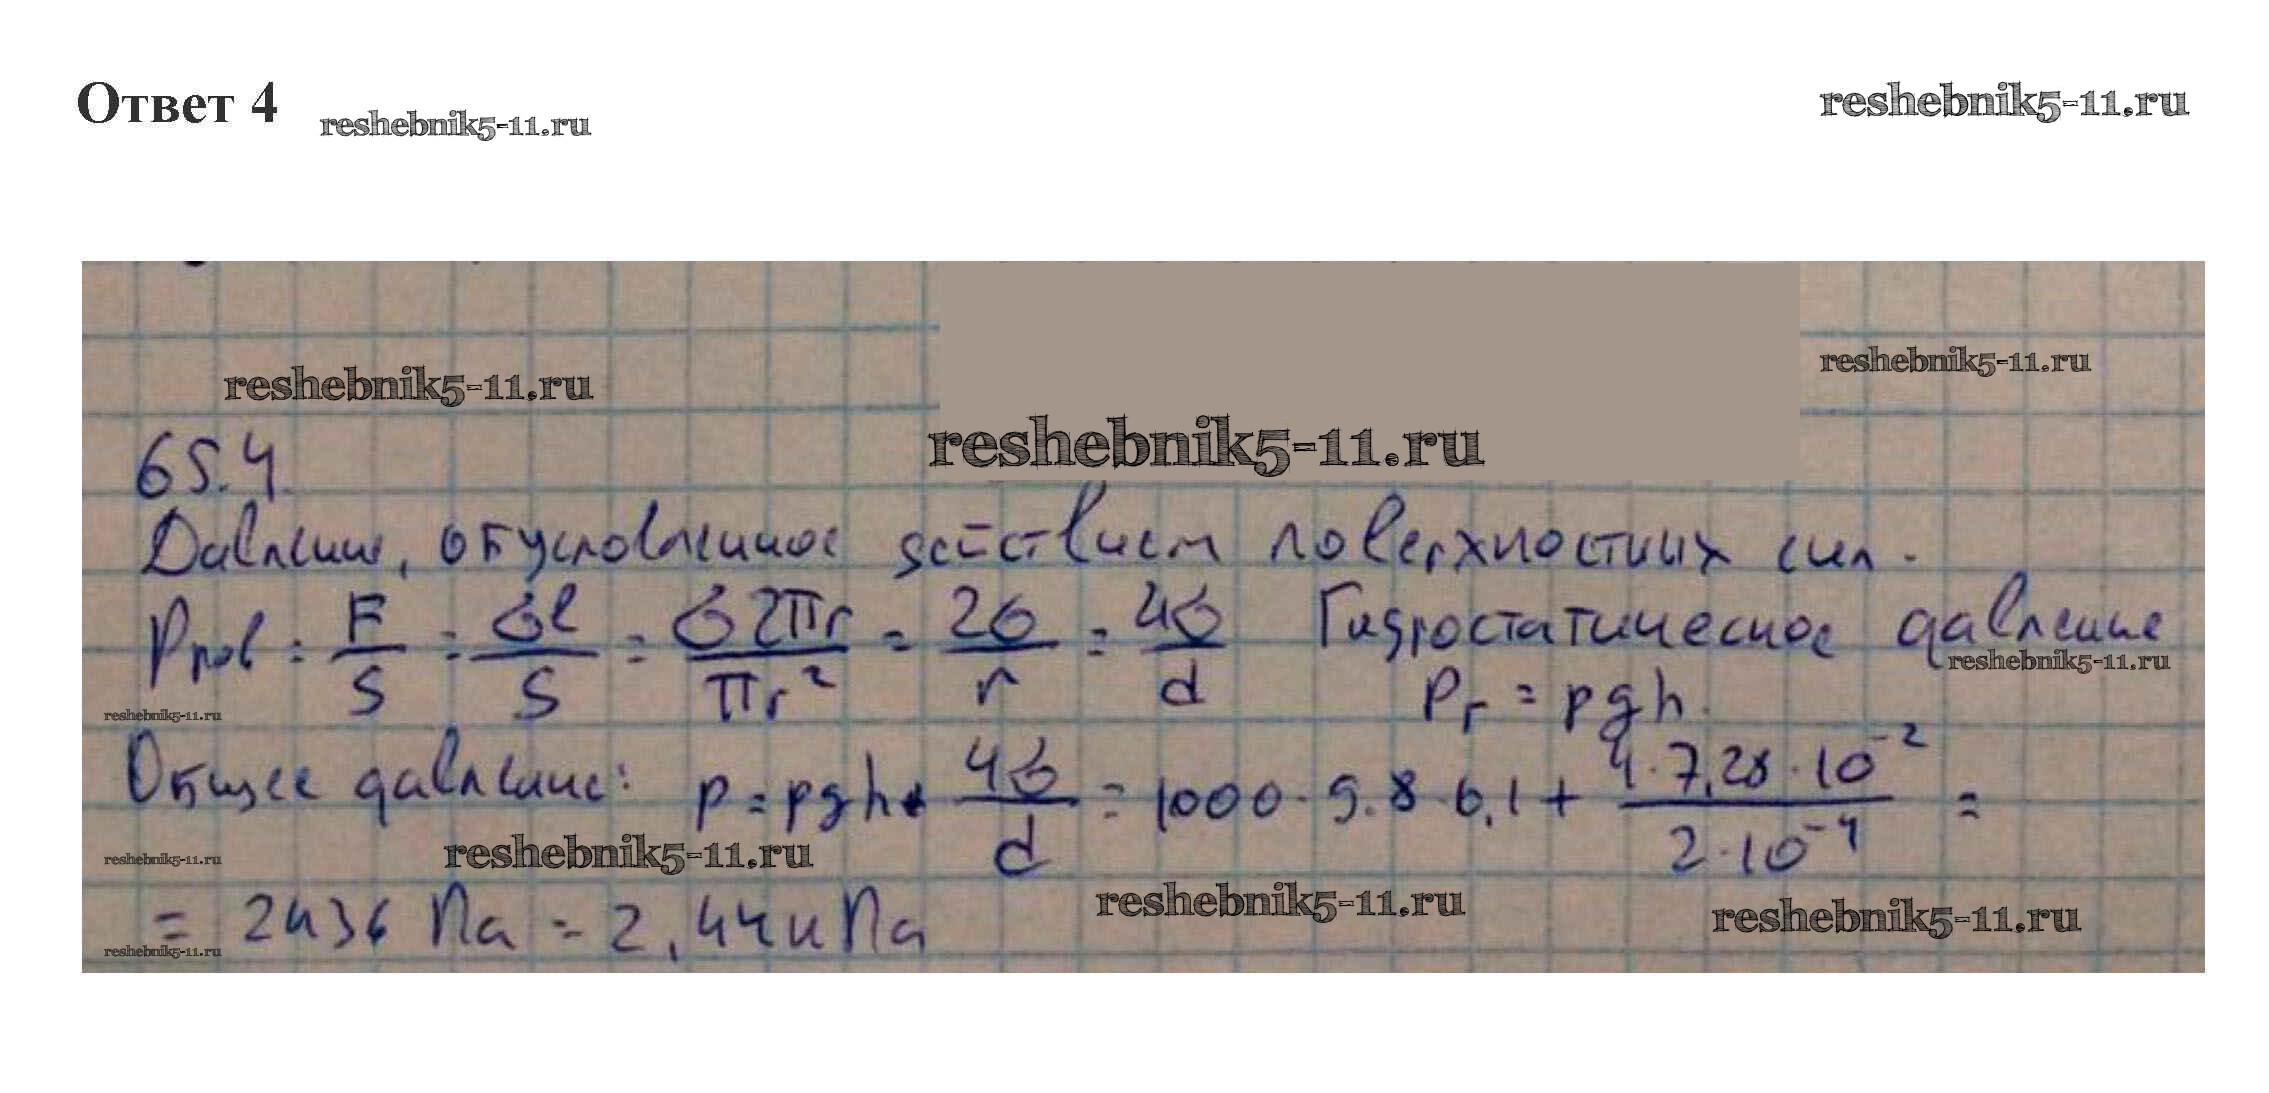 Ответ 4 reshebnik5-11.ru reshebnik5-11.ru
reshebnik5-11.ru reshebnik5-11.ru
reshebnik5-11.ru
65.4.
Давление, обусловленное действием поверхностных сил.
Pпов = F/S = σl/S = σ2πr/πr² = 2σ/r = 4σ/d Гидростатическое давление
reshebnik5-11.ru
Pг = ρgh.
reshebnik5-11.ru
Общее давление: p = ρgh + 4σ/d = 1000·9.8·0,1 + 4·7,28·10⁻²/2·10⁻⁴ =
reshebnik5-11.ru reshebnik5-11.ru
reshebnik5-11.ru reshebnik5-11.ru
= 2436 Па = 2,44 кПа
reshebnik5-11.ru